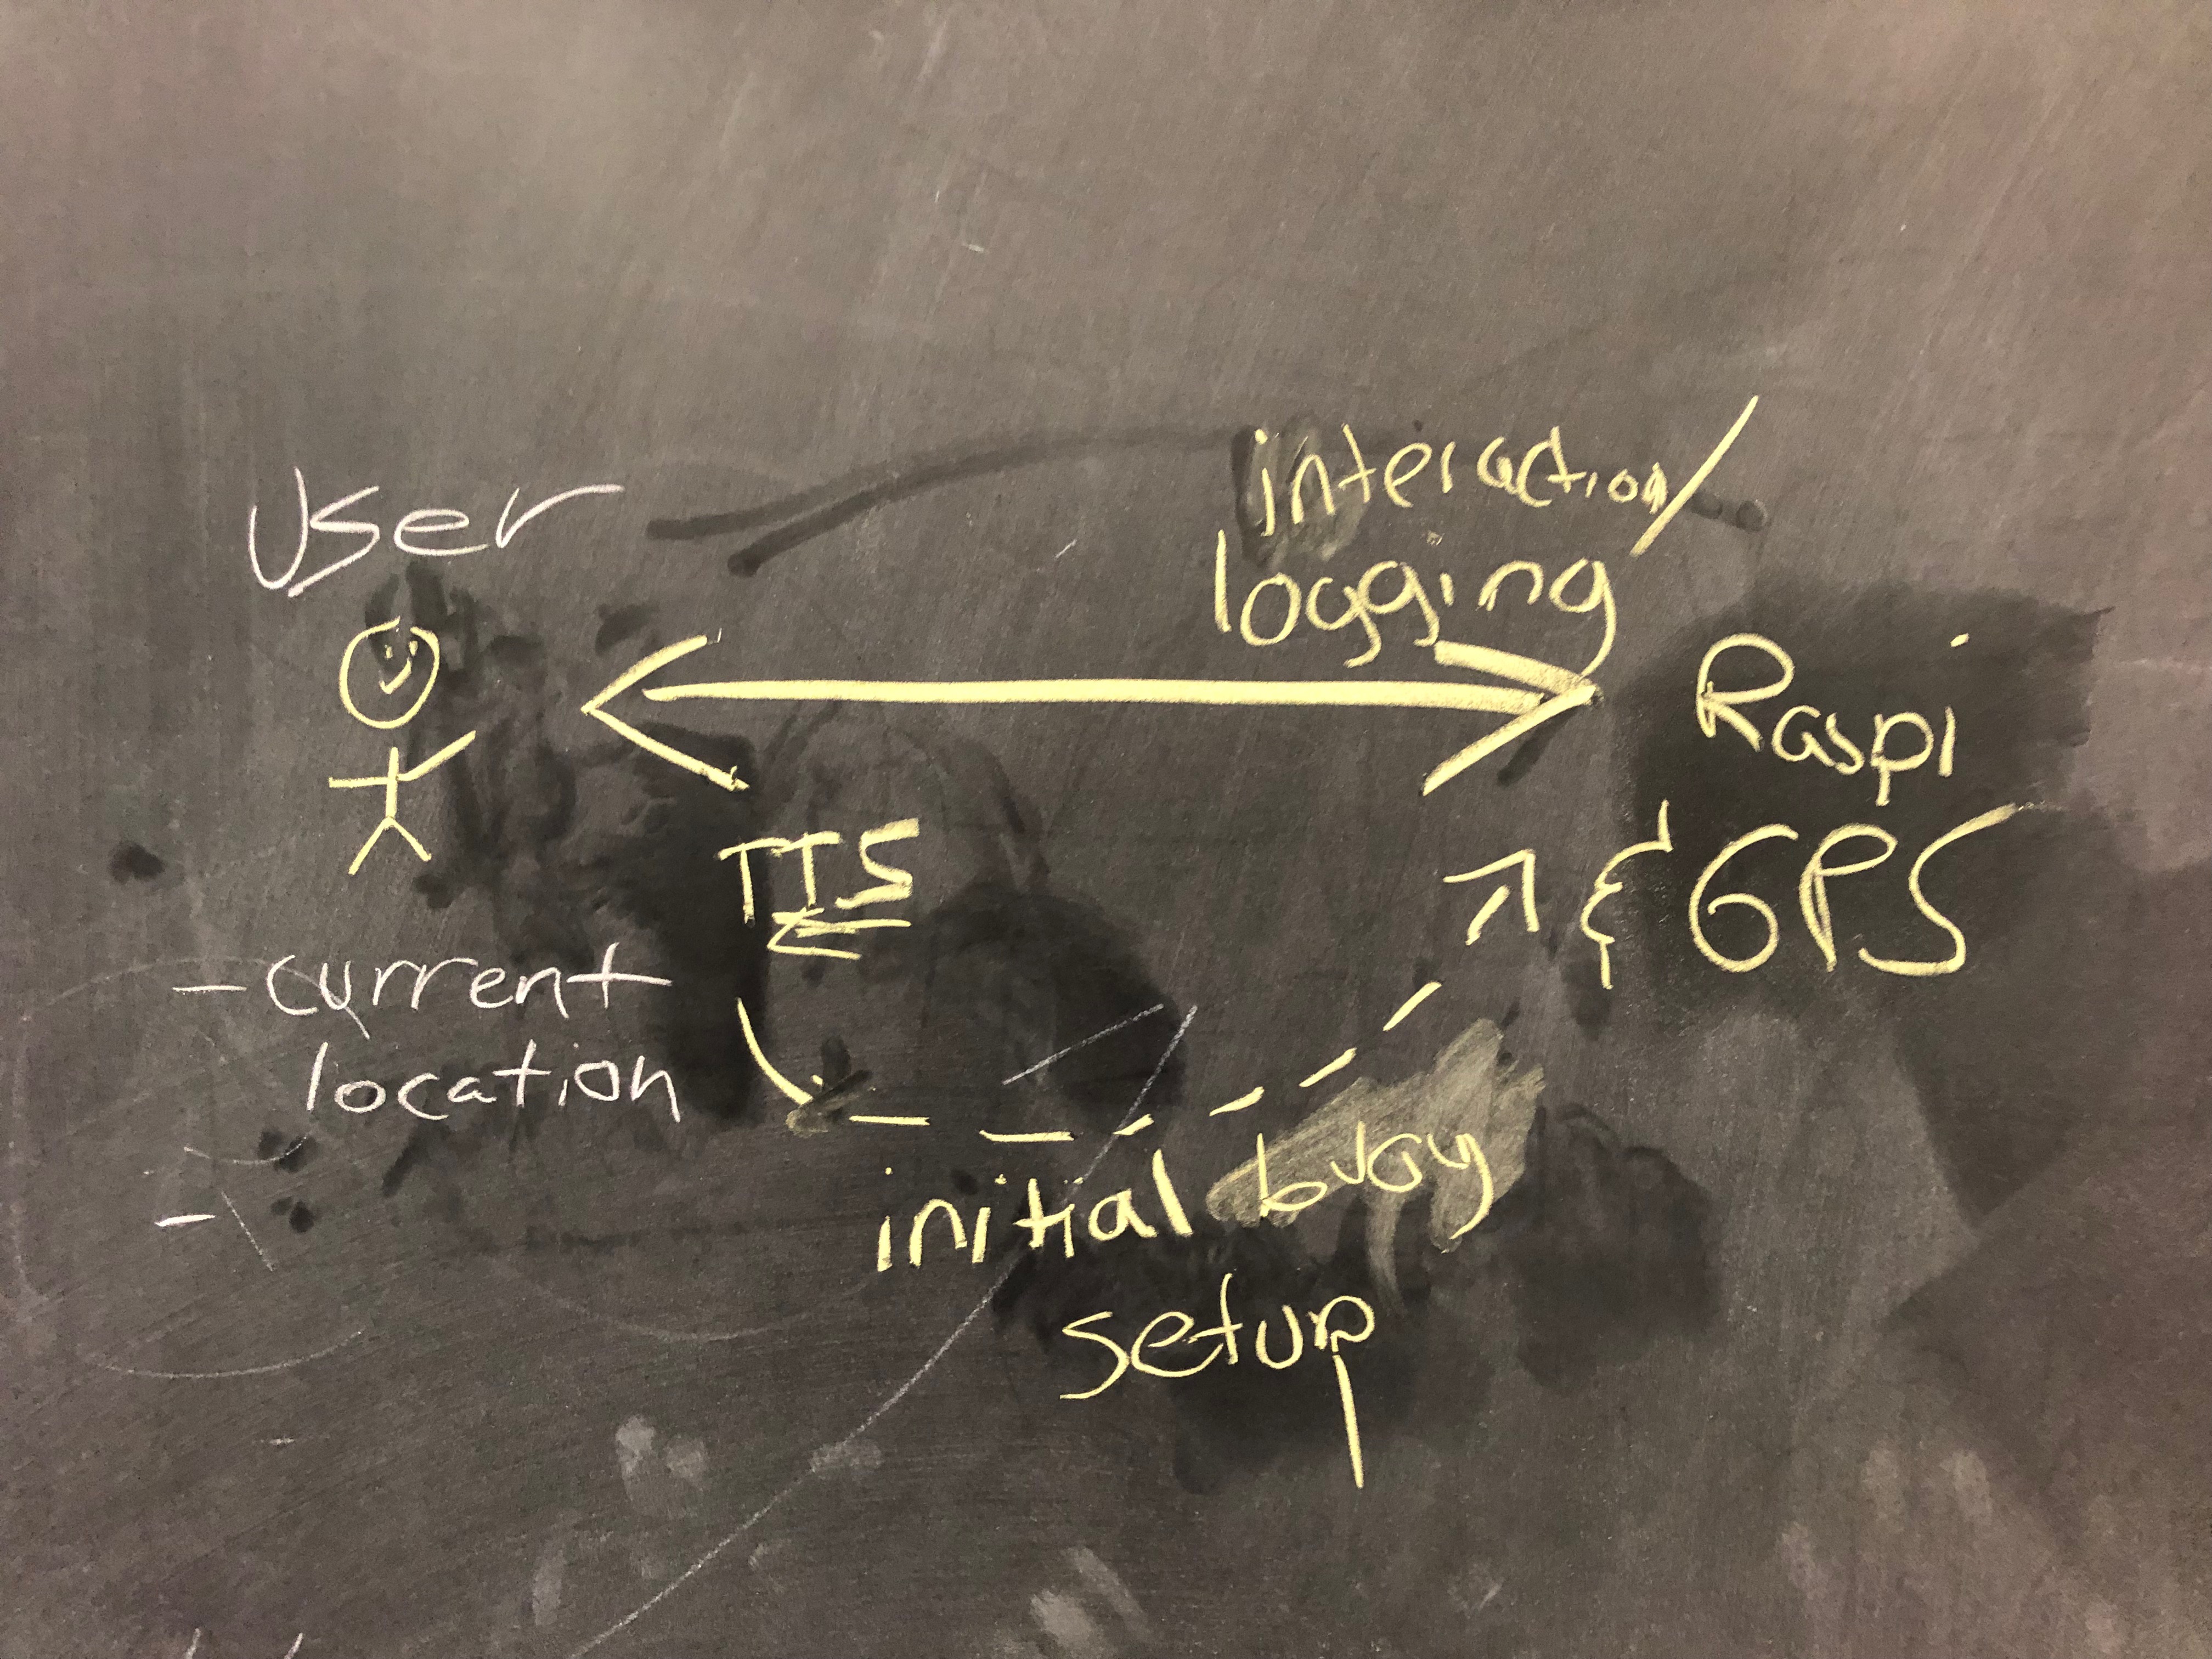 User
interaction/
logging
Raspi
& GPS
TTS
- current
location
-
initial buoy
setup